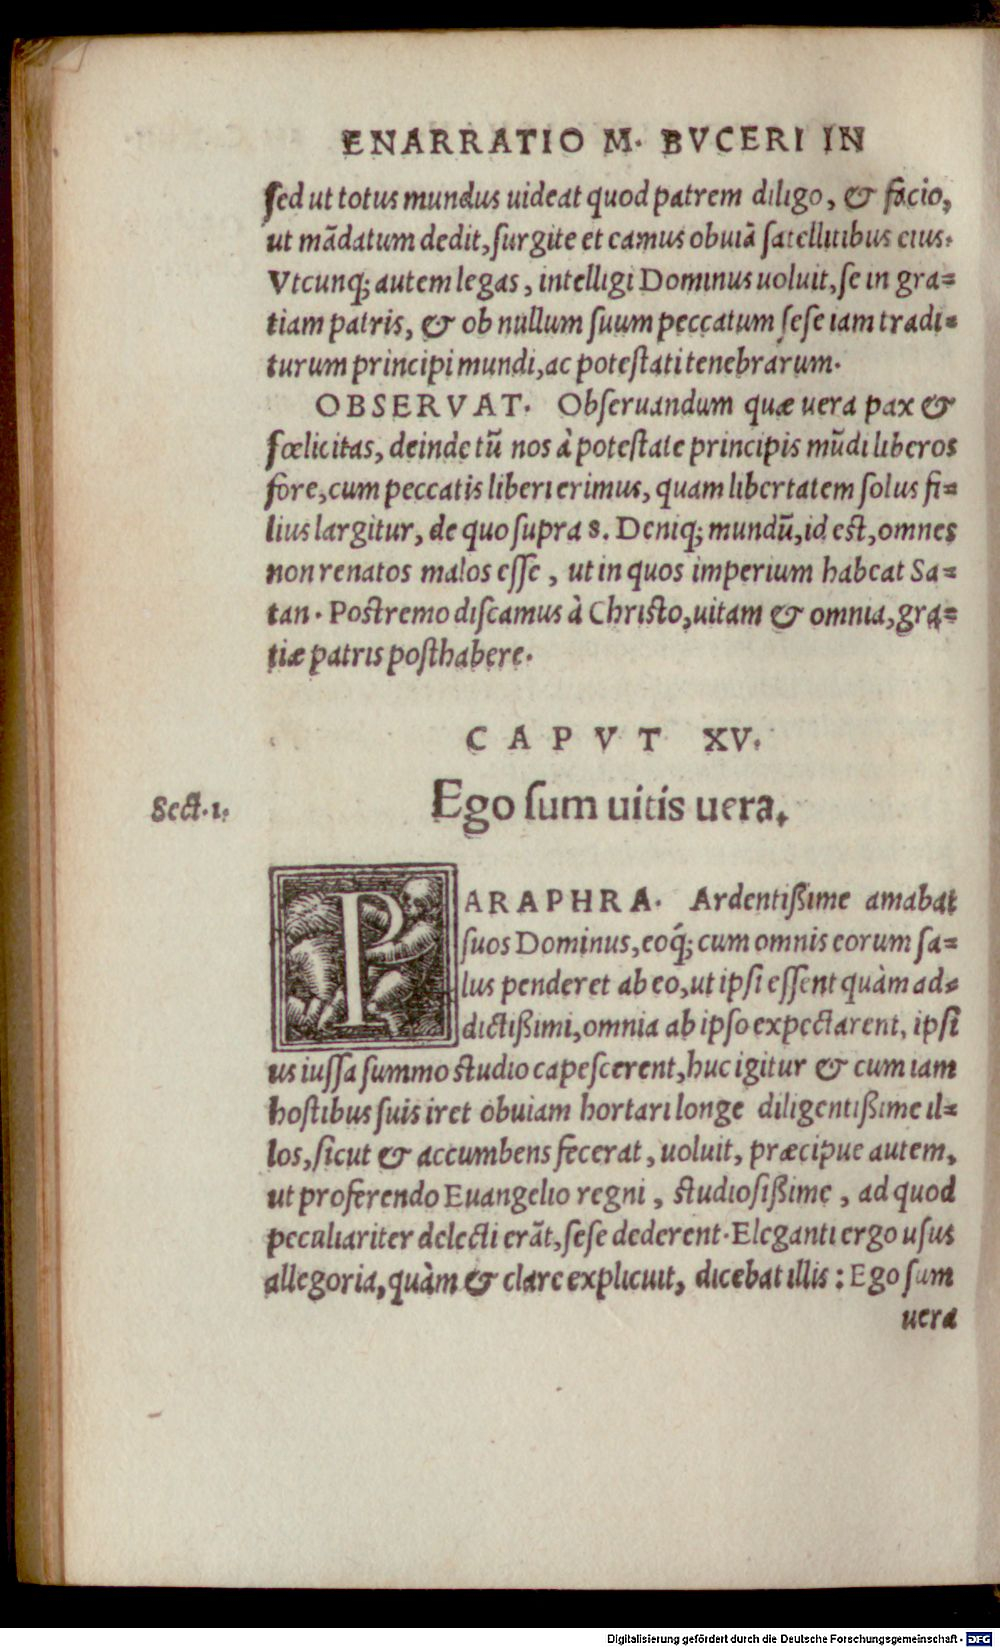 ENARRATIO M. BVCERI IN
ſed ut totus mundus uideat quod patrem diligo, & facio,
ut mādatum dedit, ſurgite et eamus obuiā ſatellitibus eius.
Vtcunq; autem legas, intelligi Dominus uoluit, ſe in gra=
tiam patris, & ob nullum ſuum peccatum ſeſe iam tradi=
turum principi mundi, ac poteſtati tenebrarum.
OBSERVAT. Obſeruandum quæ uera pax &
fœlicitas, deinde tū nos à poteſtate principis mūdi liberos
fore, cum peccatis liberi erimus, quam libertatem ſolus fi=
lius largitur, de quo ſupra 8. Deniq; mundū, id eſt, omnes
non renatos malos eſſe, ut in quos imperium habeat Sa=
tan. Poſtremo diſcamus à Chriſto, uitam & omnia, gra=
tiæ patris poſthabere.
CAPVT XV.
Sect. 1.
Ego ſum uitis uera.
PARAPHRA. Ardentiſſime amabat
ſuos Dominus, eoq́; cum omnis eorum ſa=
lus penderet ab eo, ut ipſi eſſent quàm ad=
dictißimi, omnia ab ipſo expectarent, ipſi
us iuſſa ſummo ſtudio capeſcerent, huc igitur & cum iam
hoſtibus ſuis iret obuiam hortari longe diligentißime il=
los, ſicut & accumbens fecerat, uoluit, præcipue autem,
ut proferendo Euangelio regni, ſtudioſißime, ad quod
peculiariter delecti erāt, ſeſe dederent. Eleganti ergo uſus
allegoria, quàm & clare explicuit, dicebat illis: Ego ſum
uera
Digitalisierung gefördert durch die Deutsche Forschungsgemeinschaft - DFG